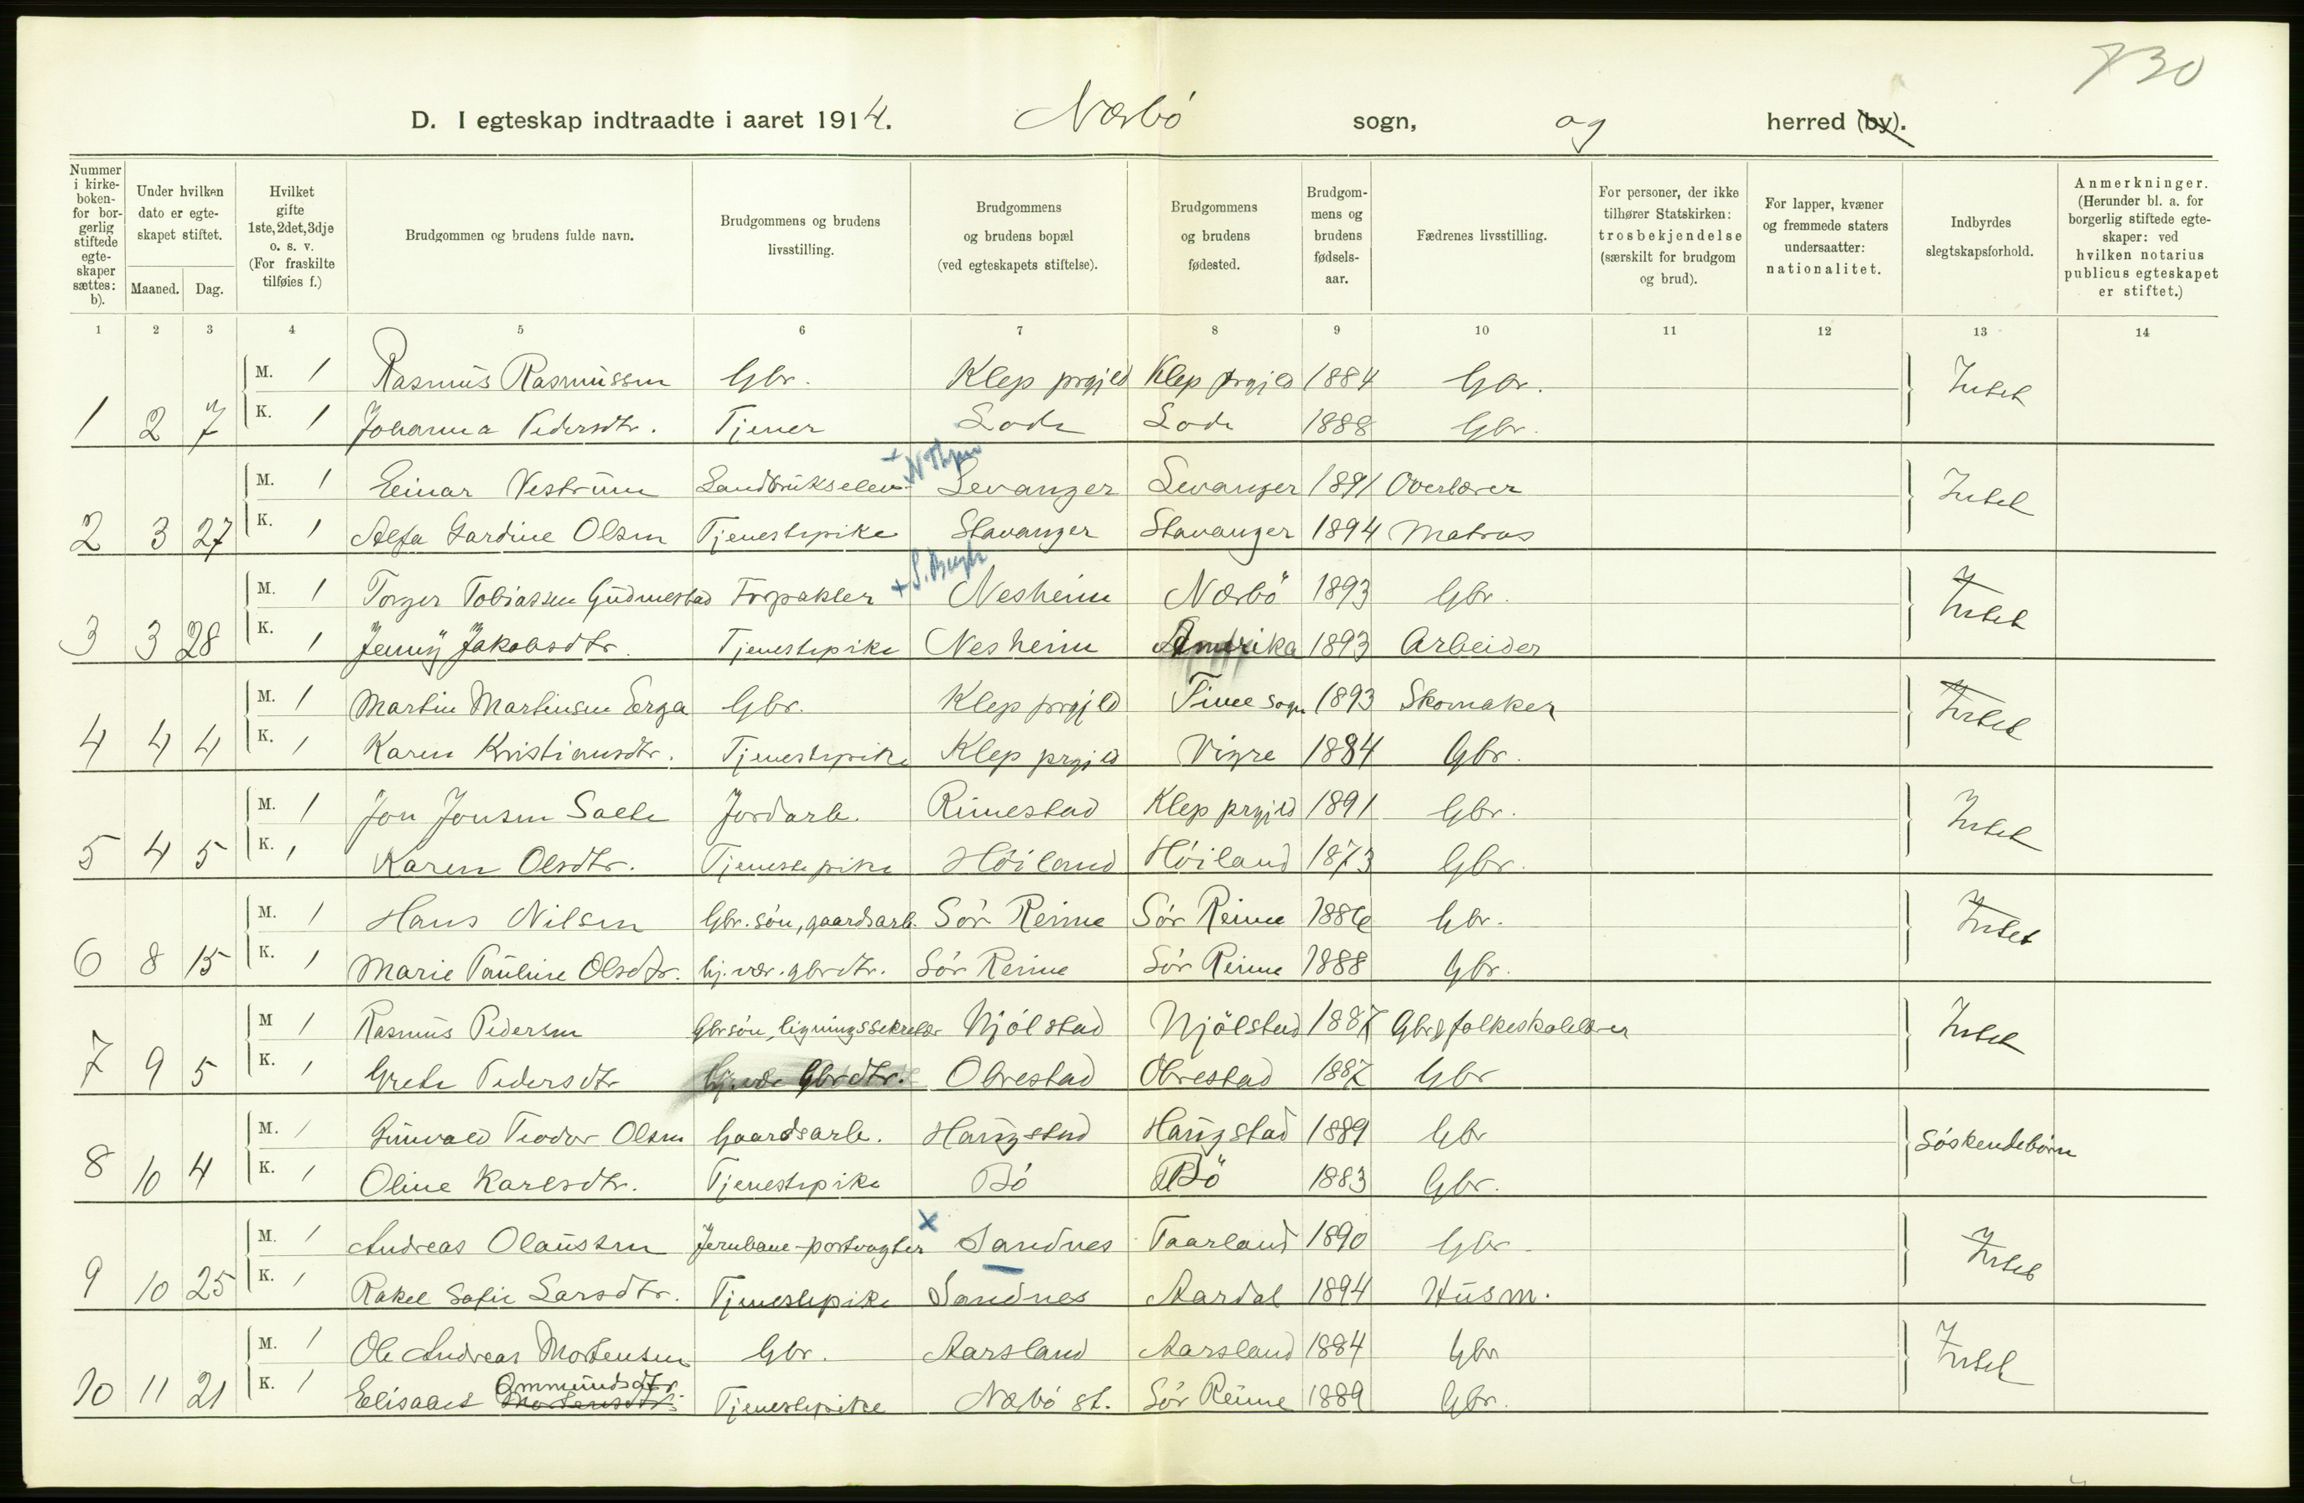 730
D. I egteskap indtraadte i aaret 1914. Nærbö sogn, og herred (by).
Nummer i kirkeboken for borgerlig stiftede egteskaper sættes: b).
Under hvilken dato er egteskapet stiftet.
Maaned. Dag.
Hvilket gifte 1ste, 2det, 3dje o. s. v. (For fraskilte tilføies f.)
Brudgommen og brudens fulde navn.
Brudgommens og brudens livsstilling.
Brudgommens og brudens bopæl (ved egteskapets stiftelse).
Brudgommens og brudens fødested.
Brudgommens og brudens fødselsaar.
Fædrenes livsstilling.
For personer, der ikke tilhører Statskirken: trosbekjendelse (særskilt for brudgom og brud).
For lapper, kvæner og fremmede staters undersaatter: nationalitet.
Indbyrdes slegtskapsforhold.
Anmerkninger. (Herunder bl. a. for borgerlig stiftede egteskaper: ved hvilken notarius publicus egteskapet er stiftet.)
1 2 3 4 5 6 7 8 9 10 11 12 13 14
M. 1 Rasmus Rasmussen Gbr. Klep prgjld Klep prgjld 1884 Gbr. Intet
1 2 7 K. 1 Johanna Pedersdtr. Tjener Lode Lode 1888 Gbr.
M. 1 Einar Vestrum Landbrukselev Levanger Levanger 1891 Overlærer Intet
2 3 27 K. 1 Alfa Gardine Olsen Tjenestepike Stavanger Stavanger 1894 Matros
M. 1 Torger Tobiassen Gudmestad Forpakter + Nesheim Nærbö 1893 Gbr. Intet
3 3 28 K. 1 Jenny Jakobsdtr. Tjenestepike Nesheim Amerika 1893 Arbeider
M. 1 Martin Martinsen Erga Gbr. Klep prgjld Time sogn 1893 Skomaker Intet
4 4 4 K. 1 Karen Kristiansdtr. Tjenestepike Klep prgjld Vigre 1884 Gbr.
M. 1 Jon Jonsen Saele Jordarb. Rimestad Klep prgjld 1891 Gbr. Intet
5 4 5 K. 1 Karen Olsdtr. Tjenestepike Höiland Höiland 1873 Gbr.
M. 1 Hans Nilsen Gbr. sön, gaardsarb. Sör Reime Sör Reime 1886 Gbr. Intet
6 8 15 K. 1 Marie Pauline Olsdtr. hj. vær. gbrdtr. Sör Reime Sör Reime 1888 Gbr.
M 1 Rasmus Pedersen Gbrsön, ligningssekretær Njölstad Njölstad 1887 Gbr & folkeskolelærer Intet
7 9 5 K. 1 Grete Pedersdtr Gbrdtr. Obrestad Obrestad 1887 Gbr
M. 1 Gunvald Teodor Olsen Gaardsarb. Haugstad Haugstad 1889 Gbr Söskendebörn
8 10 4 K. 1 Oline Karlsdtr. Tjenestepike Bö Bö 1883 Gbr.
M. 1 Andreas Olaussen Jernbane-portvagter x Sandnes Taarland 1890 Gbr Intet
9 10 25 K. 1 Rakel Sofie Larsdtr. Tjenestepike Sandnes Aardal 1894 Husm.
M. 1 Ole Andreas Mortensen Gbr. Aarsland Aarsland 1884 Gbr Intet
Ommundsdtr.
10 11 21 K. 1 Elisabet Mortensdtr. Tjenestepike Nærbö st. Sör Reime 1889 Gbr.